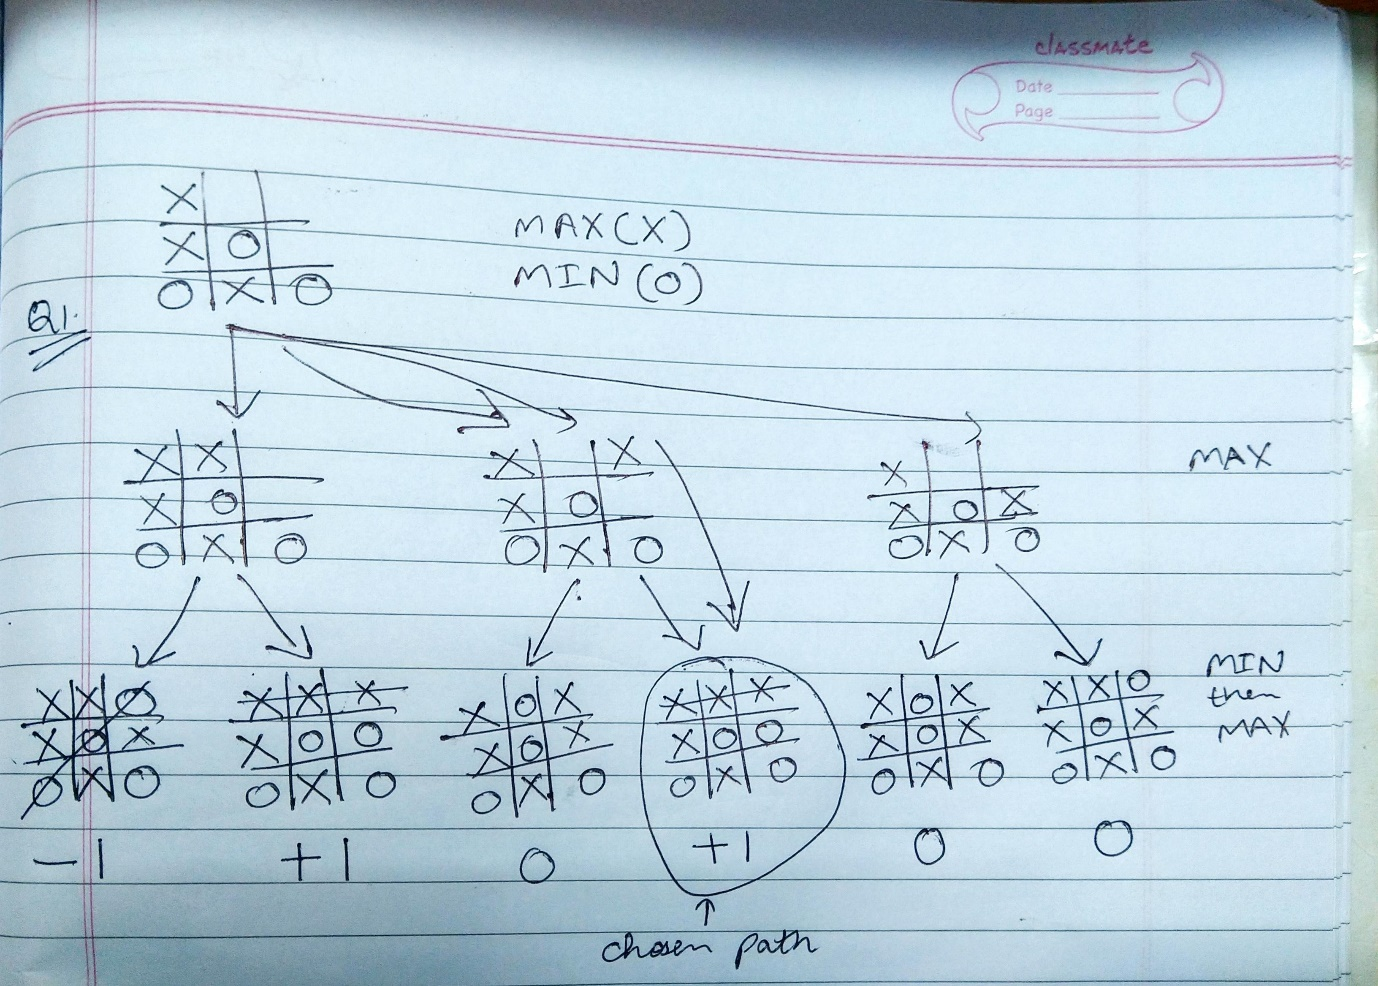 classmate
Date
Page
X
X O
O X O
MAX(X)
MIN (O)
Q1.
X X
X O
O X O
X X
X O
O X O
X
X O X
O X O
MAX
X X O
X O X
O X O
X X X
X O O
O X O
X O X
X O X
O X O
X X X
X O O
O X O
X O X
X O X
O X O
X X O
X O X
O X O
MIN
then
MAX
-1
+1
0
+1
0
0
chosen path